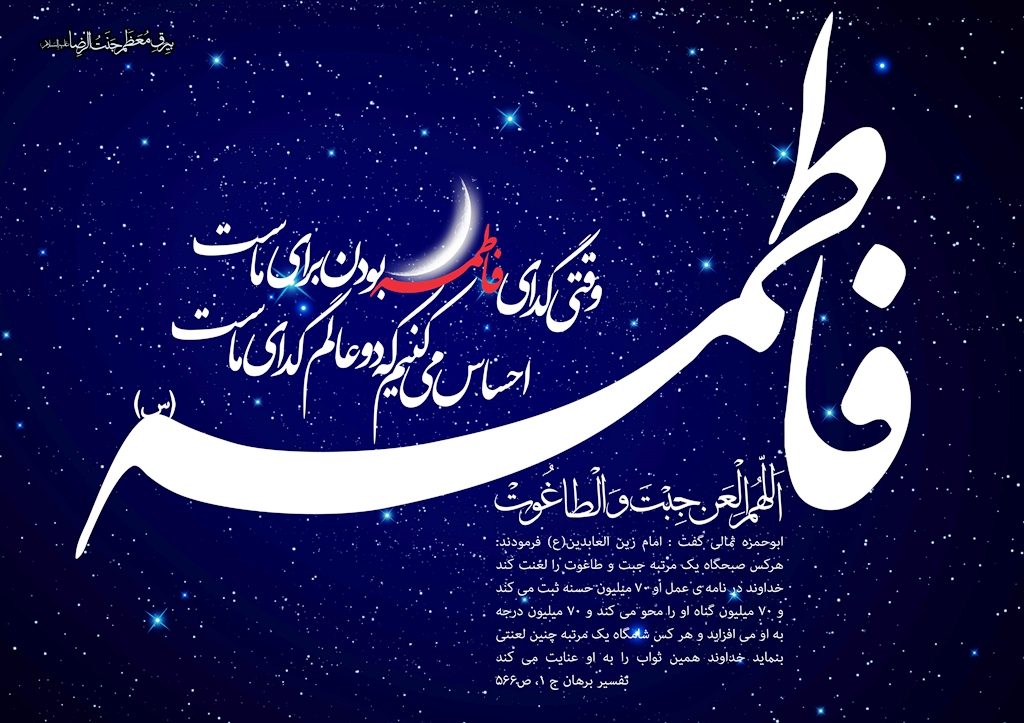 بیرق معظم جنت الرضا علیه‌السلام
فاطمه (س)
وقتی گدای فاطمه بودن برای ماست
احساس می کنیم که دو عالم گدای ماست
اَللّهُمَ الْعَن جِبْتَ وَ الْطاغُوتْ
ابوحمزه ثمالی گفت : امام زین العابدین(ع) فرمودند:
هرکس صبحگاه یک مرتبه جبت و طاغوت را لعنت کند
خداوند در نامه ی عمل او ۷۰ میلیون حسنه ثبت می کند
و ۷۰ میلیون گناه او را محو می کند و ۷۰ میلیون درجه
به او می افزاید و هر کس شامگاه یک مرتبه چنین لعنتی
بنماید خداوند همین ثواب را به او عنایت می کند
تفسیر برهان ج ۱، ص۵۶۶